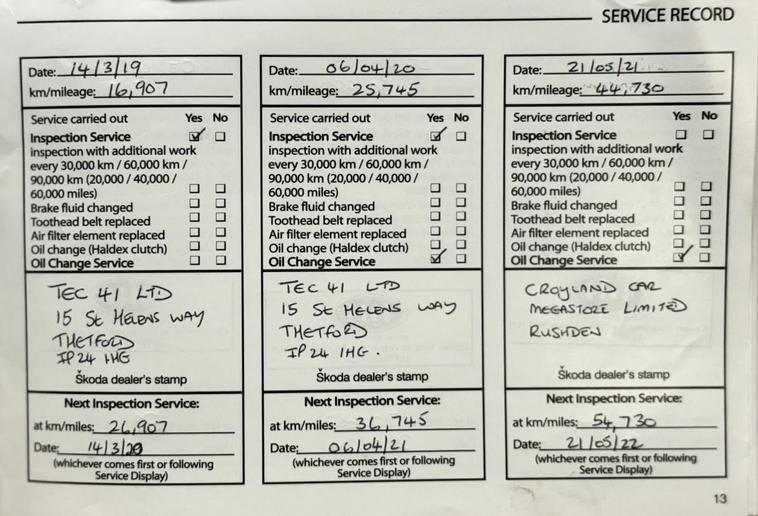 SERVICE RECORD
Date: 14/3/19
km/mileage: 16,907
Service carried out Yes No
Inspection Service
inspection with additional work
every 30,000 km / 60,000 km /
90,000 km (20,000 / 40,000 /
60,000 miles)
Brake fluid changed
Toothead belt replaced
Air filter element replaced
Oil change (Haldex clutch)
Oil Change Service
TEC 41 LTD
15 St HELENS WAY
THETFORD
IP24 1HG
Škoda dealer's stamp
Next Inspection Service:
at km/miles: 26,907
Date: 14/3/20
(whichever comes first or following
Service Display)
Date: 06/04/20
km/mileage: 25,745
Service carried out Yes No
Inspection Service
inspection with additional work
every 30,000 km / 60,000 km /
90,000 km (20,000 / 40,000 /
60,000 miles)
Brake fluid changed
Toothead belt replaced
Air filter element replaced
Oil change (Haldex clutch)
Oil Change Service
TEC 41 LTD
15 St HELENS WAY
THETFORD
IP24 1HG.
Škoda dealer's stamp
Next Inspection Service:
at km/miles: 36,745
Date: 06/04/21
(whichever comes first or following
Service Display)
Date: 21/05/21
km/mileage: 44,730
Service carried out Yes No
Inspection Service
inspection with additional work
every 30,000 km / 60,000 km /
90,000 km (20,000 / 40,000 /
60,000 miles)
Brake fluid changed
Toothead belt replaced
Air filter element replaced
Oil change (Haldex clutch)
Oil Change Service
CROYLAND CAR
MEGASTORE LIMITED
RUSHDEN
Škoda dealer's stamp
Next Inspection Service:
at km/miles: 54,730
Date: 21/05/22
(whichever comes first or following
Service Display)
13